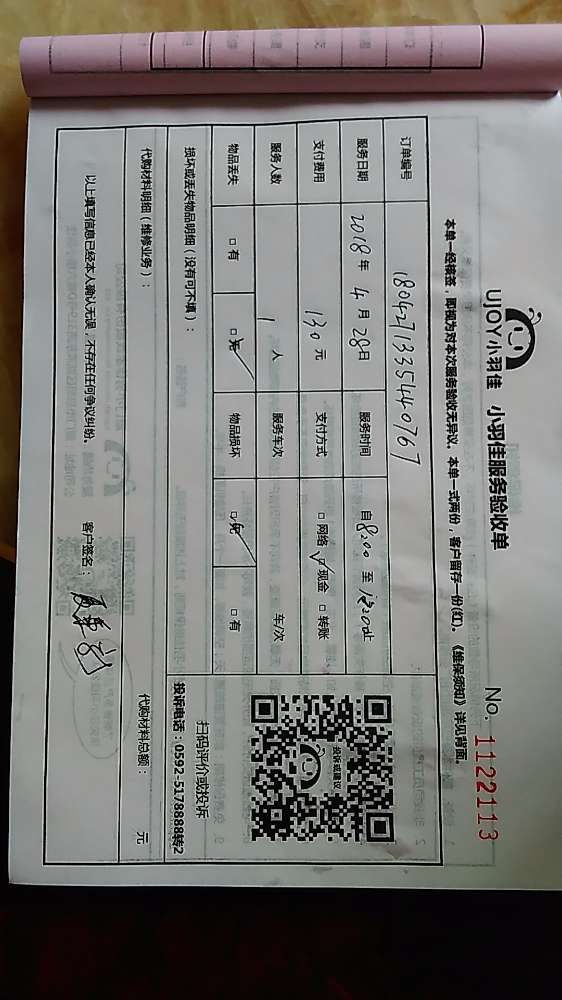 UJOY小羽佳 小羽佳服务验收单
No. 1122113
本单一经核签，即视为对本次服务验收无异议。本单一式两份，客户留存一份(红)。《维保须知》详见背面。
订单编号 1804271335440767
服务日期 2018年 4月 28日 服务时间 自8:00 至
支付费用 130元 支付方式 □网络 □现金 □转账
服务人数 1人 服务车次 车/次
物品丢失 □有 □无 物品损坏 □无 □有
损坏或丢失物品明细（没有可不填）：
投诉或建议
扫码评价或投诉
投诉电话：0592-5178888转2
代购材料明细（维修业务）： 代购材料总额： 元
以上填写信息已经本人确认无误，不存在任何争议纠纷。 客户签名：